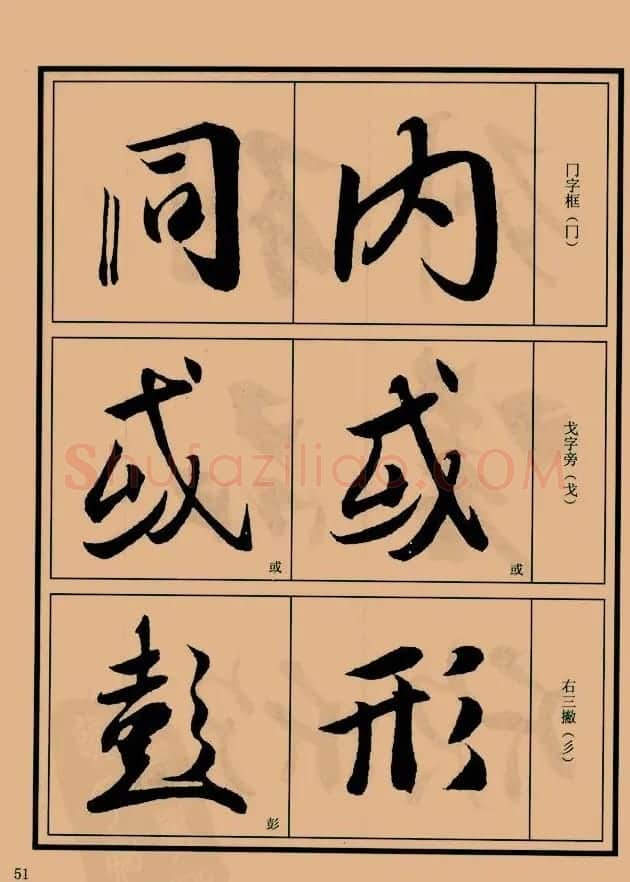 冂字框（冂）
内
同
戈字旁（戈）
或
或
或
或
右三撇（彡）
形
彭
彭
Shufaziliao.COM
51